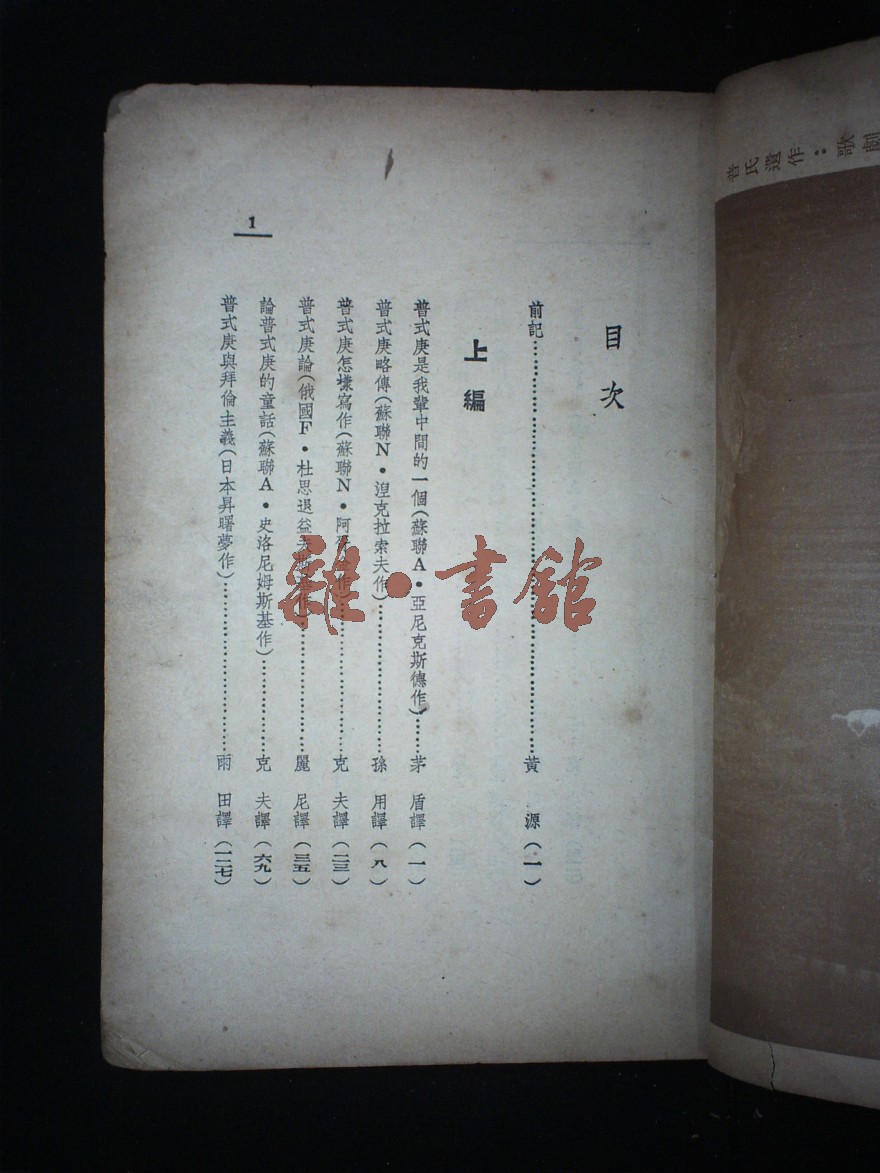 普氏遺作：歌劇
目次
前記……黃源(一)
上編
普式庚是我輩中間的一個(蘇聯A·亞尼克斯德作)……茅盾譯(一)
普式庚略傳(蘇聯N·湼克拉索夫作)……孫用譯(八)
普式庚怎樣寫作(蘇聯N·阿作)……克夫譯(二三)
普式庚論(俄國F·杜思退益夫斯基作)……麗尼譯(三五)
論普式庚的童話(蘇聯A·史洛尼姆斯基作)……克夫譯(六九)
普式庚與拜倫主義(日本昇曙夢作)……雨田譯(一二七)
1
雜·書館